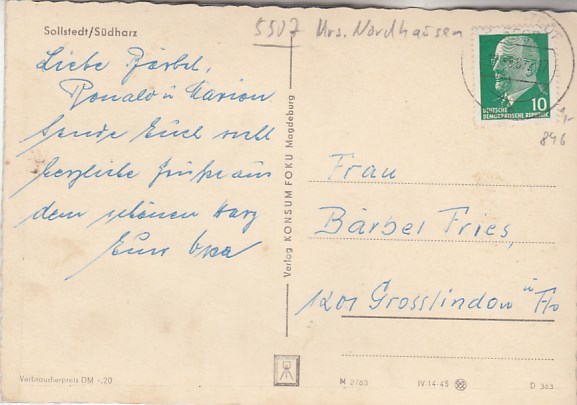 Sollstedt/Südharz
5507 Krs. Nordhausen
Liebe Bärbel,
Ronald u Marion
sende Euch recht
herzliche Grüße aus
dem schönen Harz
Eure Opa
Verlag KONSUM FOKU Magdeburg
DEUTSCHE
DEMOKRATISCHE REPUBLIK
10
846
Frau
Bärbel Fries,
1201 Grosslindow ü Ffo
Verbraucherpreis DM -,20
M 2/63
IV-14-45
D 363